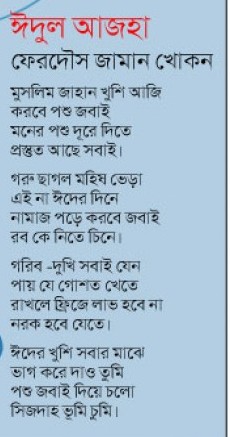 ঈদুল আজহা
ফেরদৌস জামান খোকন
মুসলিম জাহান খুশি আজি
করবে পশু জবাই
মনের পশু দূরে দিতে
প্রস্তুত আছে সবাই।
গরু ছাগল মহিষ ভেড়া
এই না ঈদের দিনে
নামাজ পড়ে করবে জবাই
রব কে নিতে চিনে।
গরিব -দুখি সবাই যেন
পায় যে গোশত খেতে
রাখলে ফ্রিজে লাভ হবে না
নরক হবে যেতে।
ঈদের খুশি সবার মাঝে
ভাগ করে দাও তুমি
পশু জবাই দিয়ে চলো
সিজদাহ ভূমি চুমি।